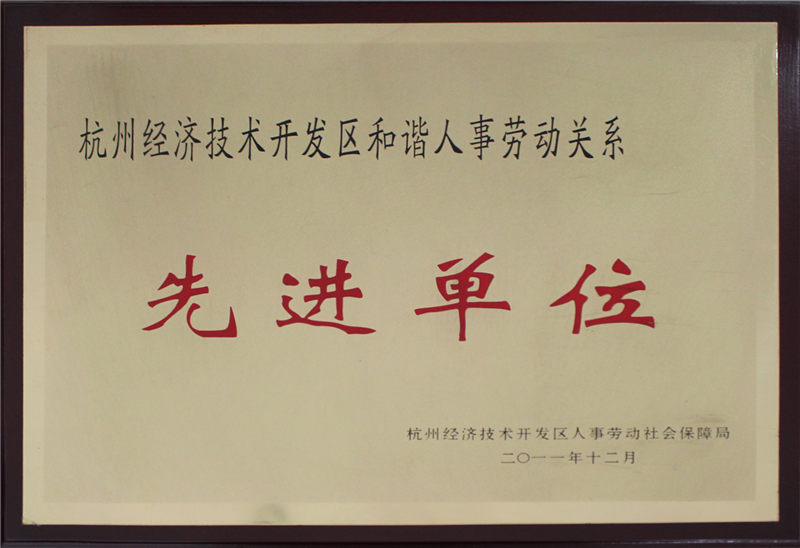 杭州经济技术开发区和谐人事劳动关系
先进单位
杭州经济技术开发区人事劳动社会保障局
二〇一一年十二月